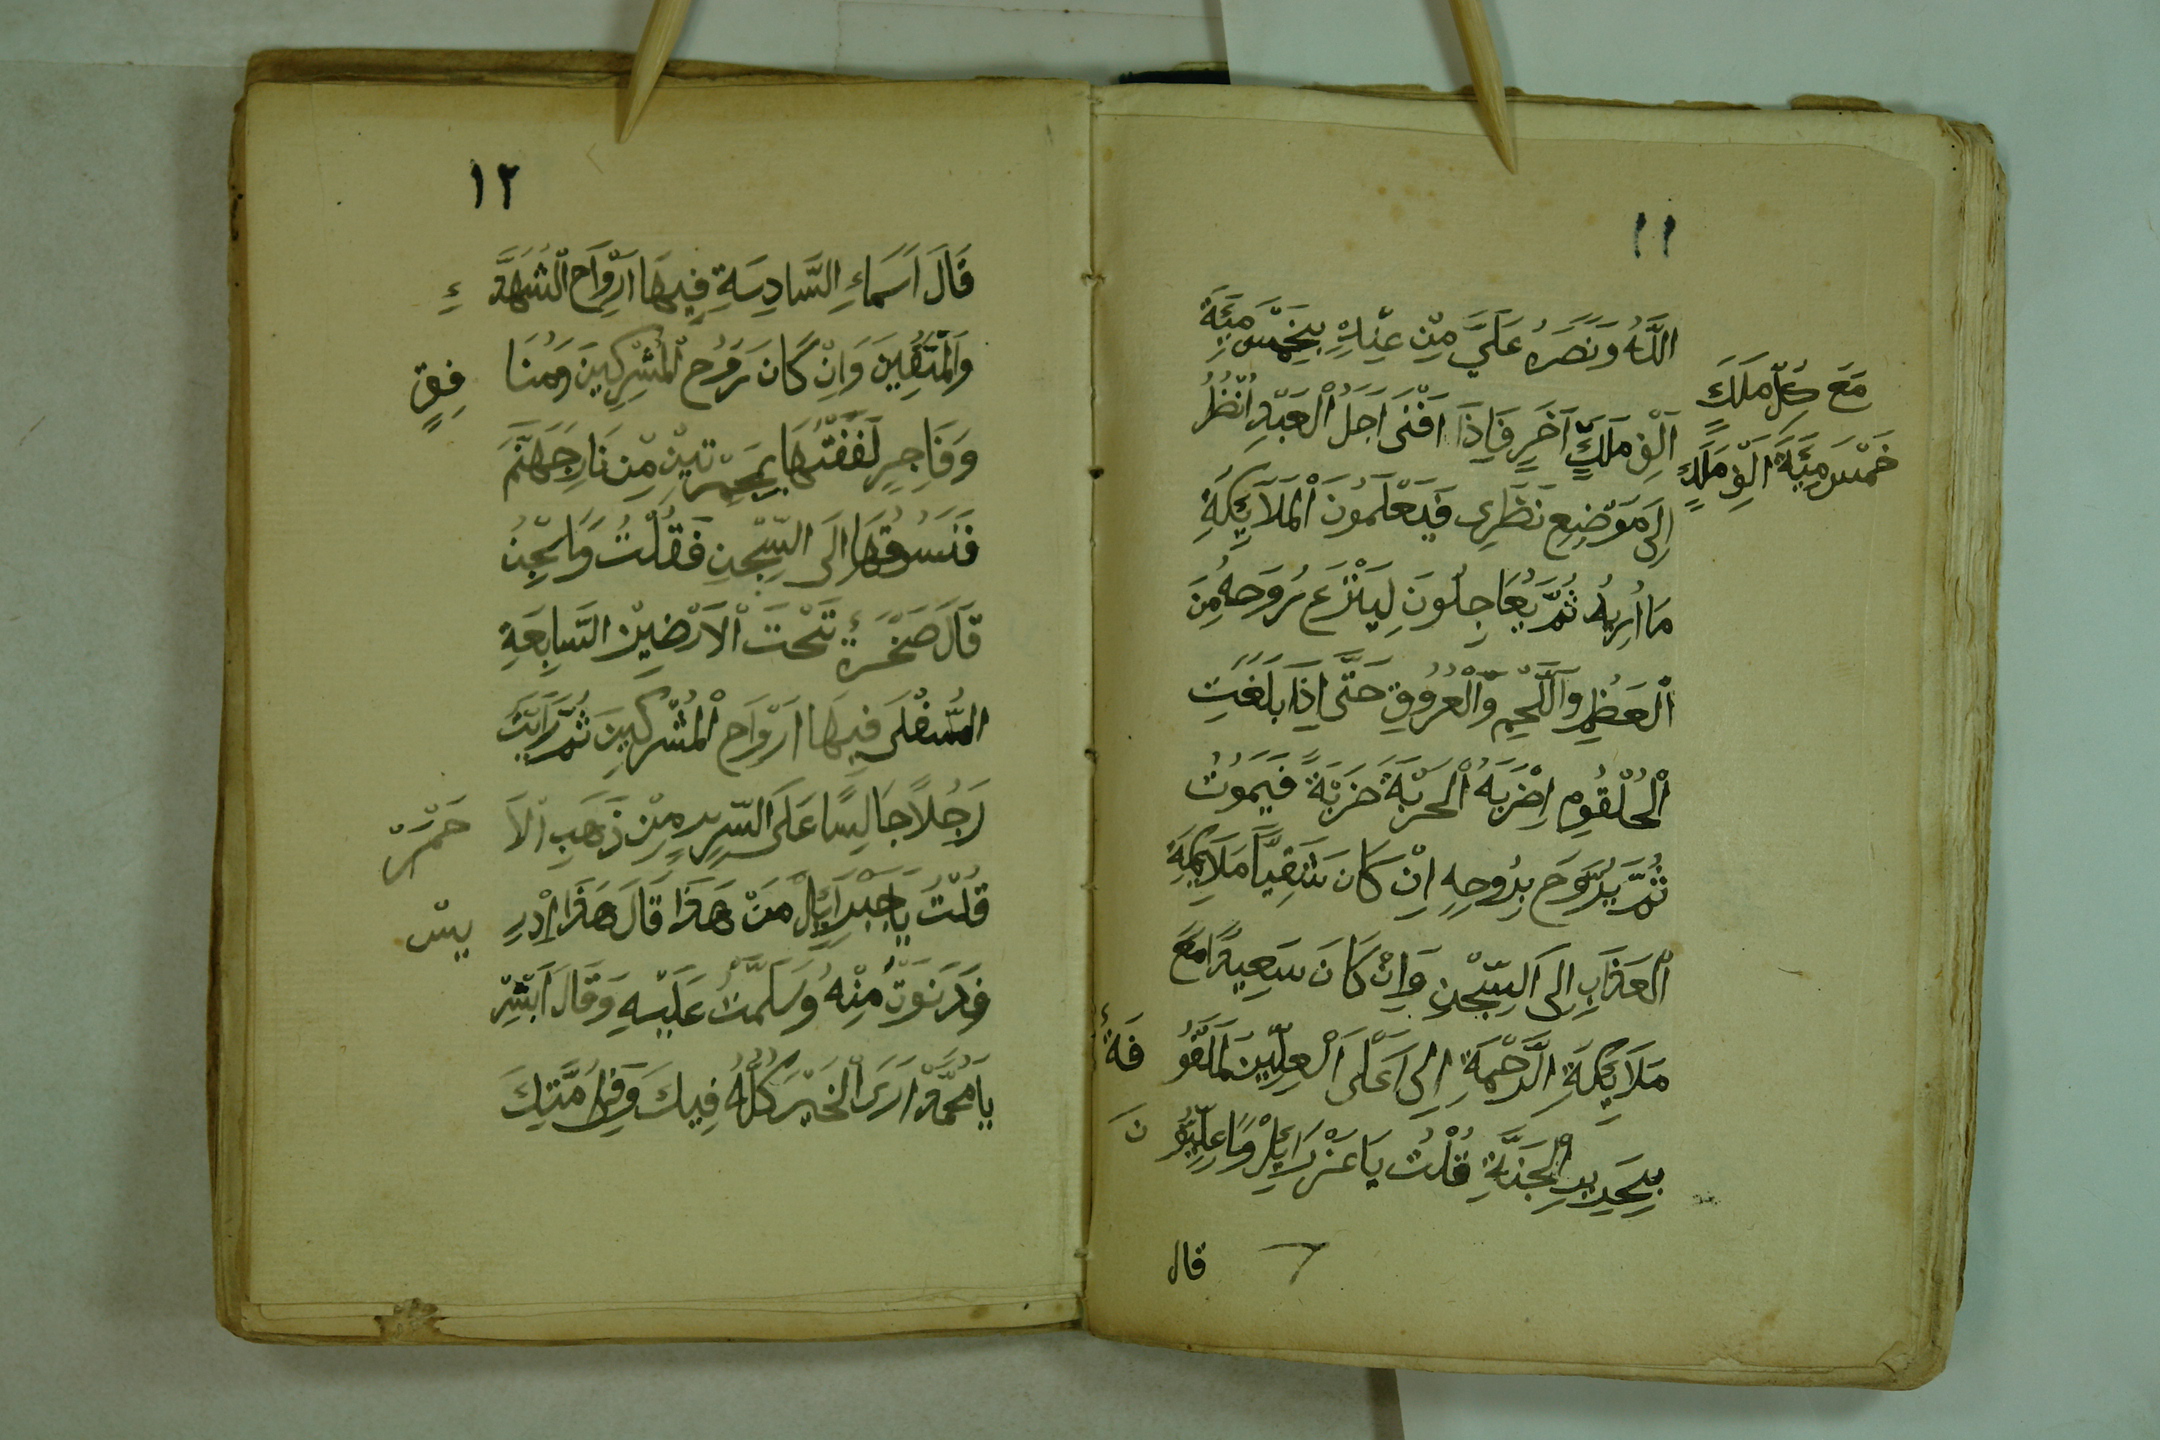 ١١
اللَّهُ وَنَصَرَهُ عَلَيَّ مِنْ عِنْدِهِ بِخَمْسِ مِئَةِ
مَعَ كُلِّ مَلَكٍ
خَمْسَ مِئَةَ اَلْفِ مَلَكٍ
اَلْفِ مَلَكٍ آخَرِ فَاِذَا اَفْنَى اَجَلُ الْعَبْدِ اُنْظُرُ
اِلَى مَوْضِعِ نَظَرِى فَيَعْلَمُونَ الْمَلَائِكَةِ
مَا اُرِيدُ ثُمَّ يُعَاجِلُونَ لِيَنْزَعَ رُوحَهُ مِنَ
الْعَظْمِ وَاللَّحْمِ وَالْعُرُوقِ حَتَّى اِذَا بَلَغَتِ
الْحُلْقُومِ اِضْرِبَهُ الْحَرْبَةَ ضَرْبَةً فَيَمُوتُ
ثُمَّ يُرَوَّحَ بِرُوحِهِ اِنْ كَانَ شَقِيًّا مَلَائِكَةِ
الْعَذَابِ اِلَى السِّجِّينِ وَاِنْ كَانَ سَعِيدًا مَعَ
مَلَائِكَةِ الرَّحْمَةِ اِلَى اَعْلَى الْعِلِّيِّينَ مَلْفُوفَةً
بِحَرِيرِ الْجَنَّةِ قُلْتُ يَا عَزْرَائِلْ وَمَا عِلِّيُّونَ
قال
١٢
قَالَ اَسَمَاءِ السَّادِسَةِ فِيهَا اَرْوَاحِ الشُّهَدَاءِ
وَالْمُتَّقِينَ وَاِنْ كَانَ رَوْحُ الْمُشْرِكِينَ وَمُنَافِقٍ
وَفَاجِرٍ لَفَفْتُهَا بِحَمْرَتَيْنِ مِنْ نَارِ جَهَنَّمَ
فَنَسُوقُهَا اِلَى السِّجِّينِ فَقُلْتُ وَمَا سِجِّينُ
قَالَ صَخْرَةٌ تَحْتَ الْاَرْضِيْنَ السَّابِعَةِ
السُّفْلَى فِيهَا اَرْوَاحِ الْمُشْرِكِينَ ثُمَّ رَاَيْتُ
رَجُلاً جَالِسًا عَلَى السَّرِيرِ مِنْ ذَهَبِ الْاَحْمَرْ
قُلْتُ يَا جَبْرَائِلْ مَنْ هَذَا قَالَ هَذَا اِدْرِيسْ
فَدَنَوْتُ مِنْهُ وَسَلَّمْتُ عَلَيْهِ وَقَالَ اَبْشِرْ
يَا مُحَمَّدْ اَرَى الْخَيْرَ كُلُّهُ فِيكَ وَفِى اُمَّتِكَ